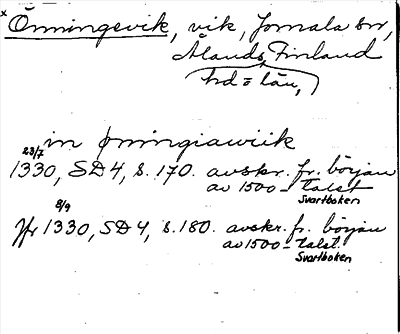 × Önningevik, vik, Jomala sn,
Ålands, Finland
hd = län,
in ønningiawiik
23/7
1330, SD 4, s. 170. avskr. fr. början
av 1500-talet
Svartboken
8/9
Jfr 1330, SD 4, s. 180. avskr. fr. början
av 1500-talet.
Svartboken